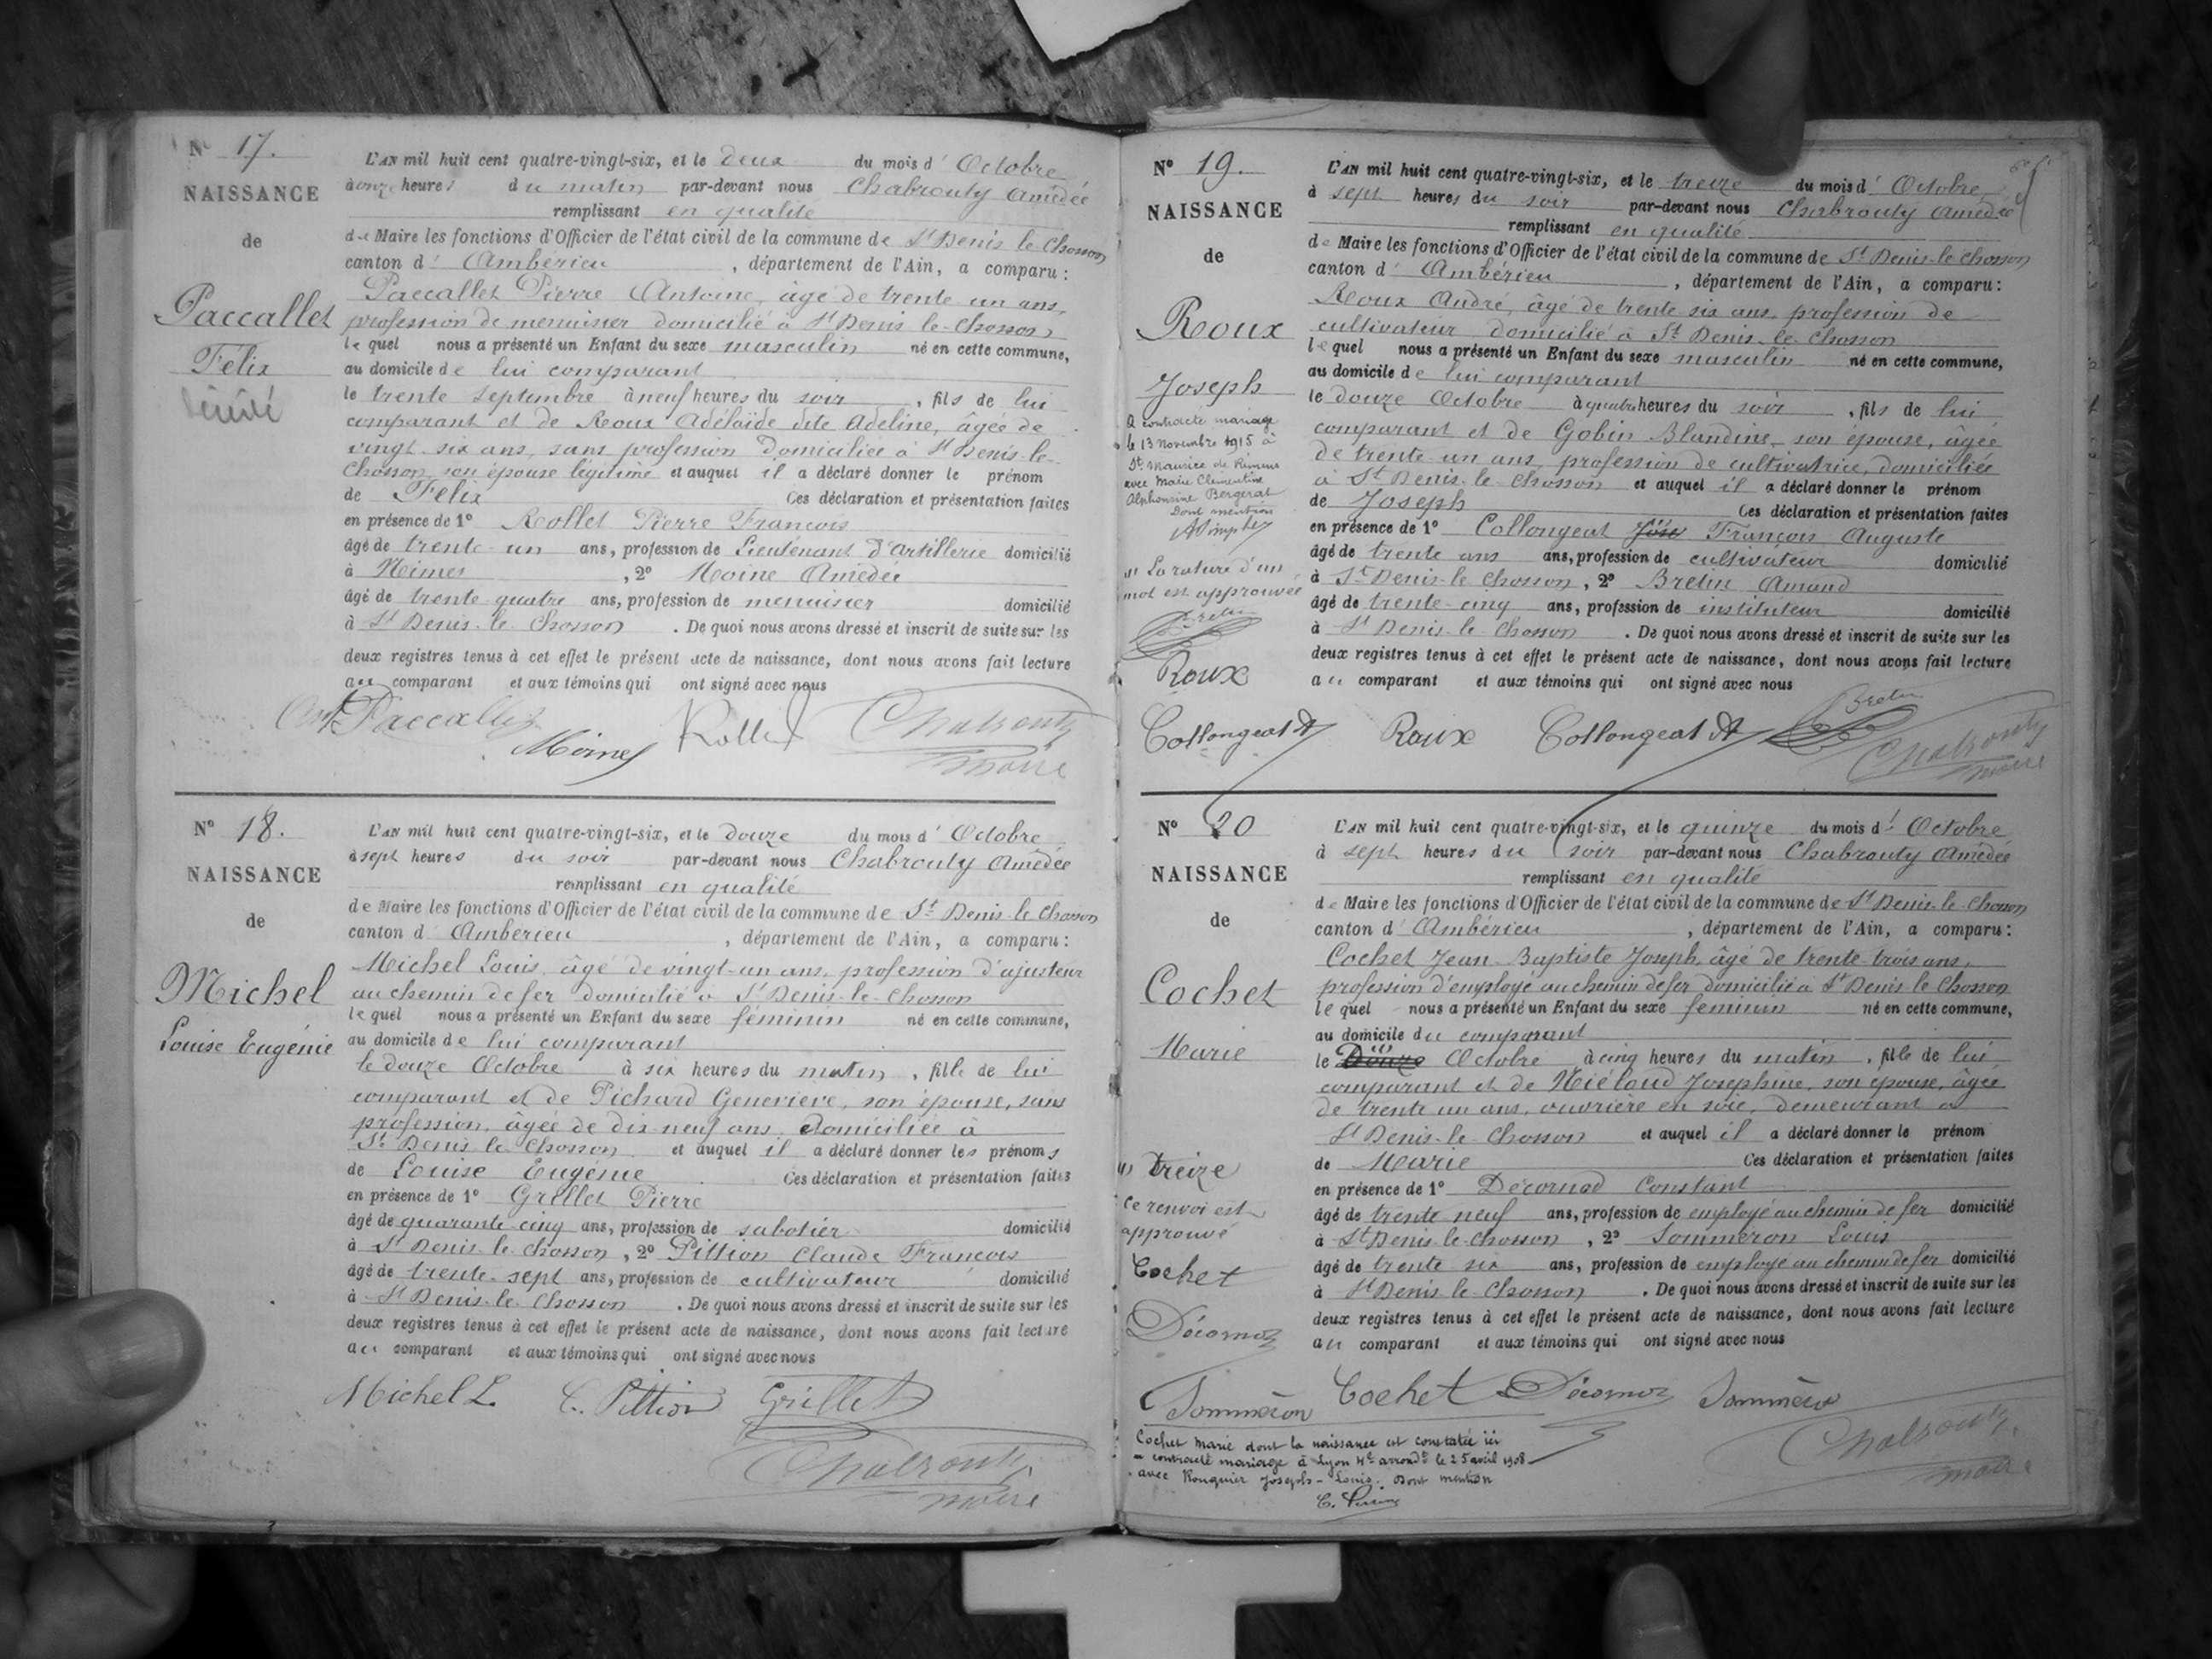 N° 17.
NAISSANCE
de
Paccallet
Félix
décédé
L'AN mil huit cent quatre-vingt-six, et le deux du mois d'Octobre
à onze heures du matin par-devant nous Chabrouty Amédée
remplissant en qualité
de Maire les fonctions d'Officier de l'état civil de la commune de St Denis le Chosson
canton d'Ambérieu, département de l'Ain, a comparu:
Paccallet Pierre Antoine, âgé de trente un ans,
profession de menuisier domicilié à St Denis-le-Chosson
lequel nous a présenté un Enfant du sexe masculin né en cette commune,
au domicile de lui comparant
le trente Septembre à neuf heures du soir, fils de lui
comparant et de Roux Adélaïde dite Adeline, âgée de
vingt-six ans, sans profession domiciliée à St Denis-le-
Chosson, son épouse légitime et auquel il a déclaré donner le prénom
de Félix Ces déclaration et présentation faites
en présence de 1° Rollet Pierre François
âgé de trente-un ans, profession de Lieutenant d'artillerie domicilié
à Nîmes, 2° Moine Amédée
âgé de trente-quatre ans, profession de menuisier domicilié
à St Denis-le-Chosson. De quoi nous avons dressé et inscrit de suite sur les
deux registres tenus à cet effet le présent acte de naissance, dont nous avons fait lecture
au comparant et aux témoins qui ont signé avec nous
Ant Paccallet Moine Rollet Chabrouty
maire
N° 18.
NAISSANCE
de
Michel
Louise Eugénie
L'AN mil huit cent quatre-vingt-six, et le douze du mois d'Octobre
à sept heures du soir par-devant nous Chabrouty Amédée
remplissant en qualité
de Maire les fonctions d'Officier de l'état civil de la commune de St Denis-le-Chosson
canton d'Ambérieu, département de l'Ain, a comparu:
Michel Louis, âgé de vingt-un ans, profession d'ajusteur
au chemin de fer domicilié à St Denis-le-Chosson
lequel nous a présenté un Enfant du sexe féminin né en cette commune,
au domicile de lui comparant
le douze Octobre à six heures du matin, fille de lui
comparant et de Pichard Geneviève, son épouse, sans
profession, âgée de dix-neuf ans, domiciliée à
St Denis le Chosson et auquel il a déclaré donner les prénoms
de Louise Eugénie Ces déclaration et présentation faites
en présence de 1° Grillet Pierre
âgé de quarante-cinq ans, profession de sabotier domicilié
à St Denis-le-Chosson, 2° Pittion Claude François
âgé de trente-sept ans, profession de cultivateur domicilié
à St Denis-le-Chosson. De quoi nous avons dressé et inscrit de suite sur les
deux registres tenus à cet effet le présent acte de naissance, dont nous avons fait lecture
au comparant et aux témoins qui ont signé avec nous
Michel L. C. Pittion Grillet
Chabrouty
maire
N° 19.
NAISSANCE
de
Roux
Joseph
A contracté mariage
le 13 Novembre 1915 à
St Maurice de Rémens
avec Marie Clémentine
Alphonsine Bergerat
Dont mention
La rature d'un
mot est approuvée
Bretin
Roux
Collongeat A
L'AN mil huit cent quatre-vingt-six, et le treize du mois d'Octobre
à sept heures du soir par-devant nous Chabrouty Amédée
remplissant en qualité
de Maire les fonctions d'Officier de l'état civil de la commune de St Denis-le-Chosson
canton d'Ambérieu, département de l'Ain, a comparu:
Roux André, âgé de trente six ans, profession de
cultivateur domicilié à St Denis-le-Chosson
lequel nous a présenté un Enfant du sexe masculin né en cette commune,
au domicile de lui comparant
le douze Octobre à quatre heures du soir, fils de lui
comparant et de Gobin Blandine, son épouse, âgée
de trente-un ans, profession de cultivatrice, domiciliée
à St Denis-le-Chosson et auquel il a déclaré donner le prénom
de Joseph Ces déclaration et présentation faites
en présence de 1° Collongeat François Auguste
âgé de trente ans ans, profession de cultivateur domicilié
à St Denis-le-Chosson, 2° Bretin Amand
âgé de trente-cinq ans, profession de instituteur domicilié
à St Denis-le-Chosson. De quoi nous avons dressé et inscrit de suite sur les
deux registres tenus à cet effet le présent acte de naissance, dont nous avons fait lecture
au comparant et aux témoins qui ont signé avec nous
Roux Collongeat A Bretin
Chabrouty
maire
N° 20
NAISSANCE
de
Cochet
Marie
treize
ce renvoi est
approuvé
Cochet
Décornod
Sommèron
L'AN mil huit cent quatre-vingt-six, et le quinze du mois d'Octobre
à sept heures du soir par-devant nous Chabrouty Amédée
remplissant en qualité
de Maire les fonctions d'Officier de l'état civil de la commune de St Denis-le-Chosson
canton d'Ambérieu, département de l'Ain, a comparu:
Cochet Jean-Baptiste Joseph, âgé de trente-trois ans,
profession d'employé au chemin de fer domicilié à St Denis le Chosson
lequel nous a présenté un Enfant du sexe féminin né en cette commune,
au domicile du comparant
le Douze Octobre à cinq heures du matin, fille de lui
comparant et de Niélaud Josephine, son épouse, âgée
de trente un ans, ouvrière en soie, demeurant à
St Denis-le-Chosson et auquel il a déclaré donner le prénom
de Marie Ces déclaration et présentation faites
en présence de 1° Décornod Constant
âgé de trente neuf ans, profession de employé au chemin de fer domicilié
à St Denis-le-Chosson, 2° Sommèron Louis
âgé de trente six ans, profession de employé au chemin de fer domicilié
à St Denis-le-Chosson. De quoi nous avons dressé et inscrit de suite sur les
deux registres tenus à cet effet le présent acte de naissance, dont nous avons fait lecture
au comparant et aux témoins qui ont signé avec nous
Cochet Décornod Sommèron
Chabrouty
maire
Cochet Marie dont la naissance est constatée ici
a contracté mariage à Lyon 4e arrondt le 25 avril 1908
avec Rouquier Joseph-Louis. Dont mention